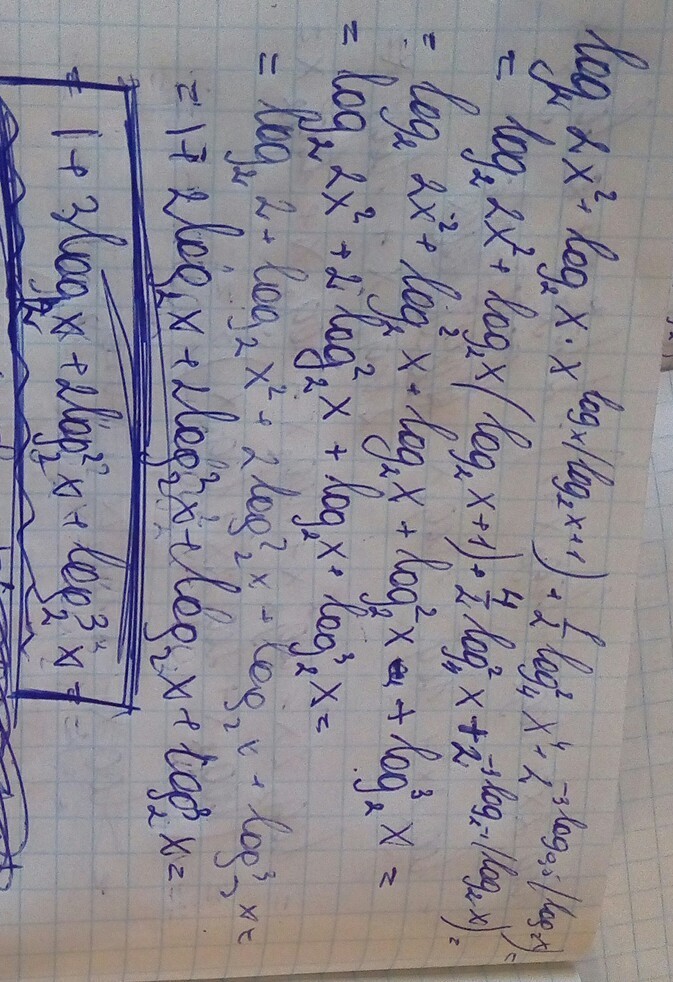 log₂ 2x² + log₂ x · x^(log_x(log₂x+1)) + 1/2 log₄² x⁴ + 2^(-3 log_0,5(log₂x)) =
= log₂ 2x² + log₂ x (log₂ x + 1) + 1/2 log₄² x⁴ + 2^(-3 log_2^-1(log₂ x)) =
= log₂ 2x² + log₂² x + log₂ x + log₂² x + log₂³ x =
= log₂ 2x² + 2 log₂² x + log₂ x + log₂³ x =
= log₂ 2 + log₂ x² + 2 log₂² x + log₂ x + log₂³ x =
= 1 + 2 log₂ x + 2 log₂² x + log₂ x + log₂³ x =
= 1 + 3 log₂ x + 2 log₂² x + log₂³ x =